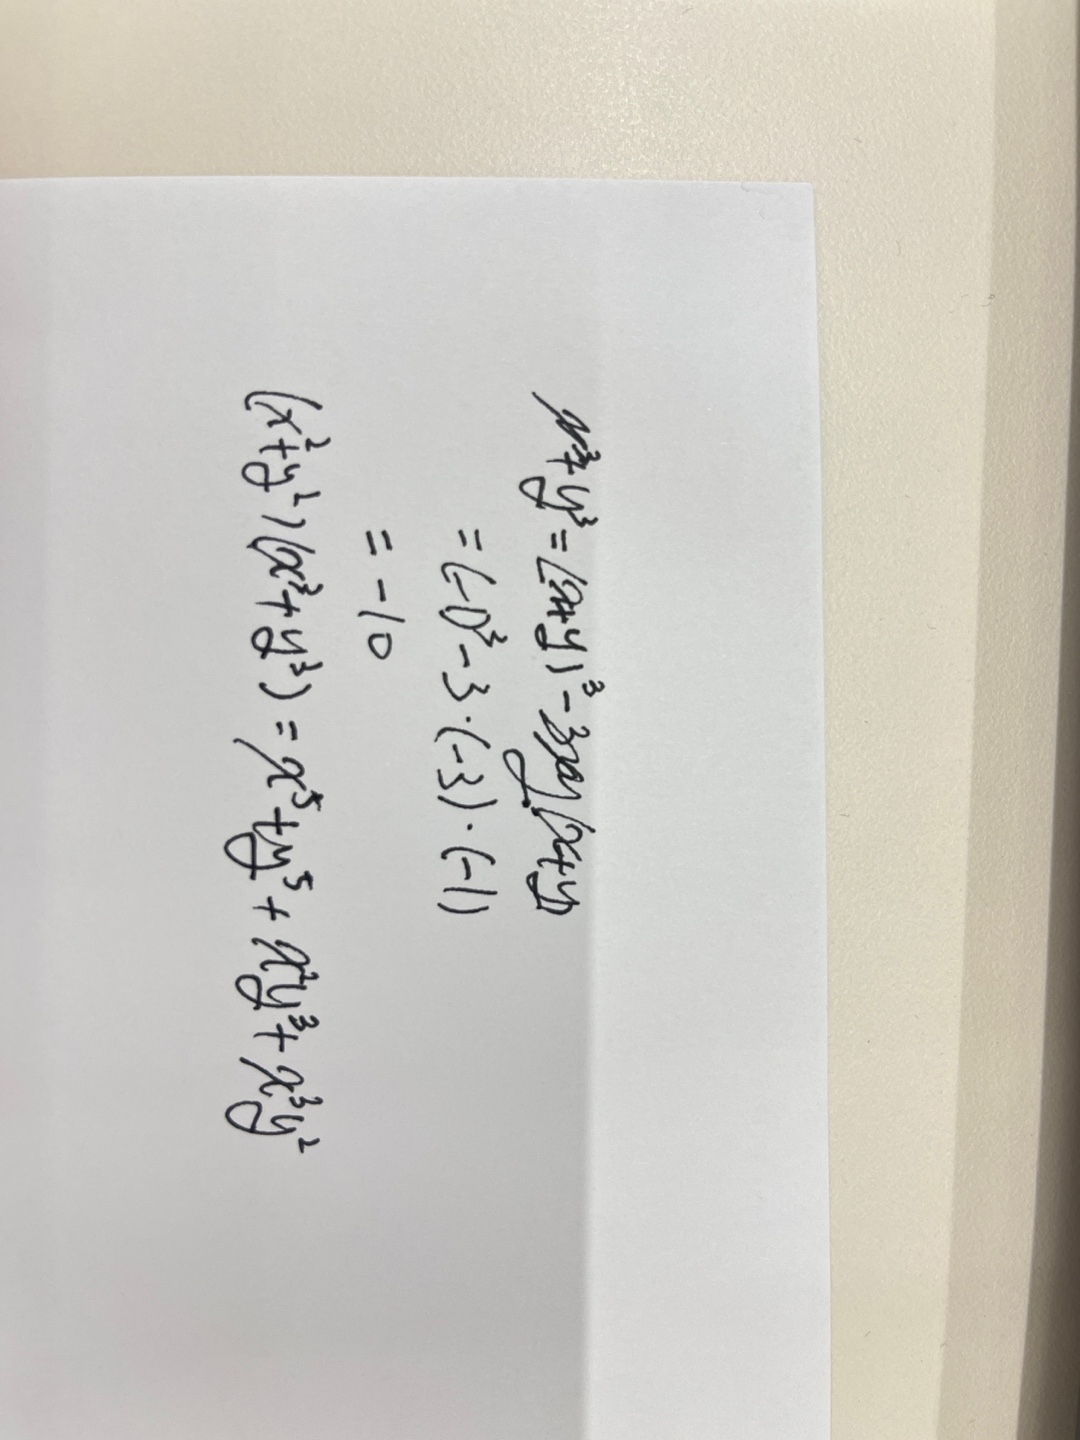 x³+y³=(x+y)³-3xy(x+y)
=(-1)³-3·(-3)·(-1)
=-10
(x²+y²)(x³+y³)=x⁵+y⁵+x²y³+x³y²